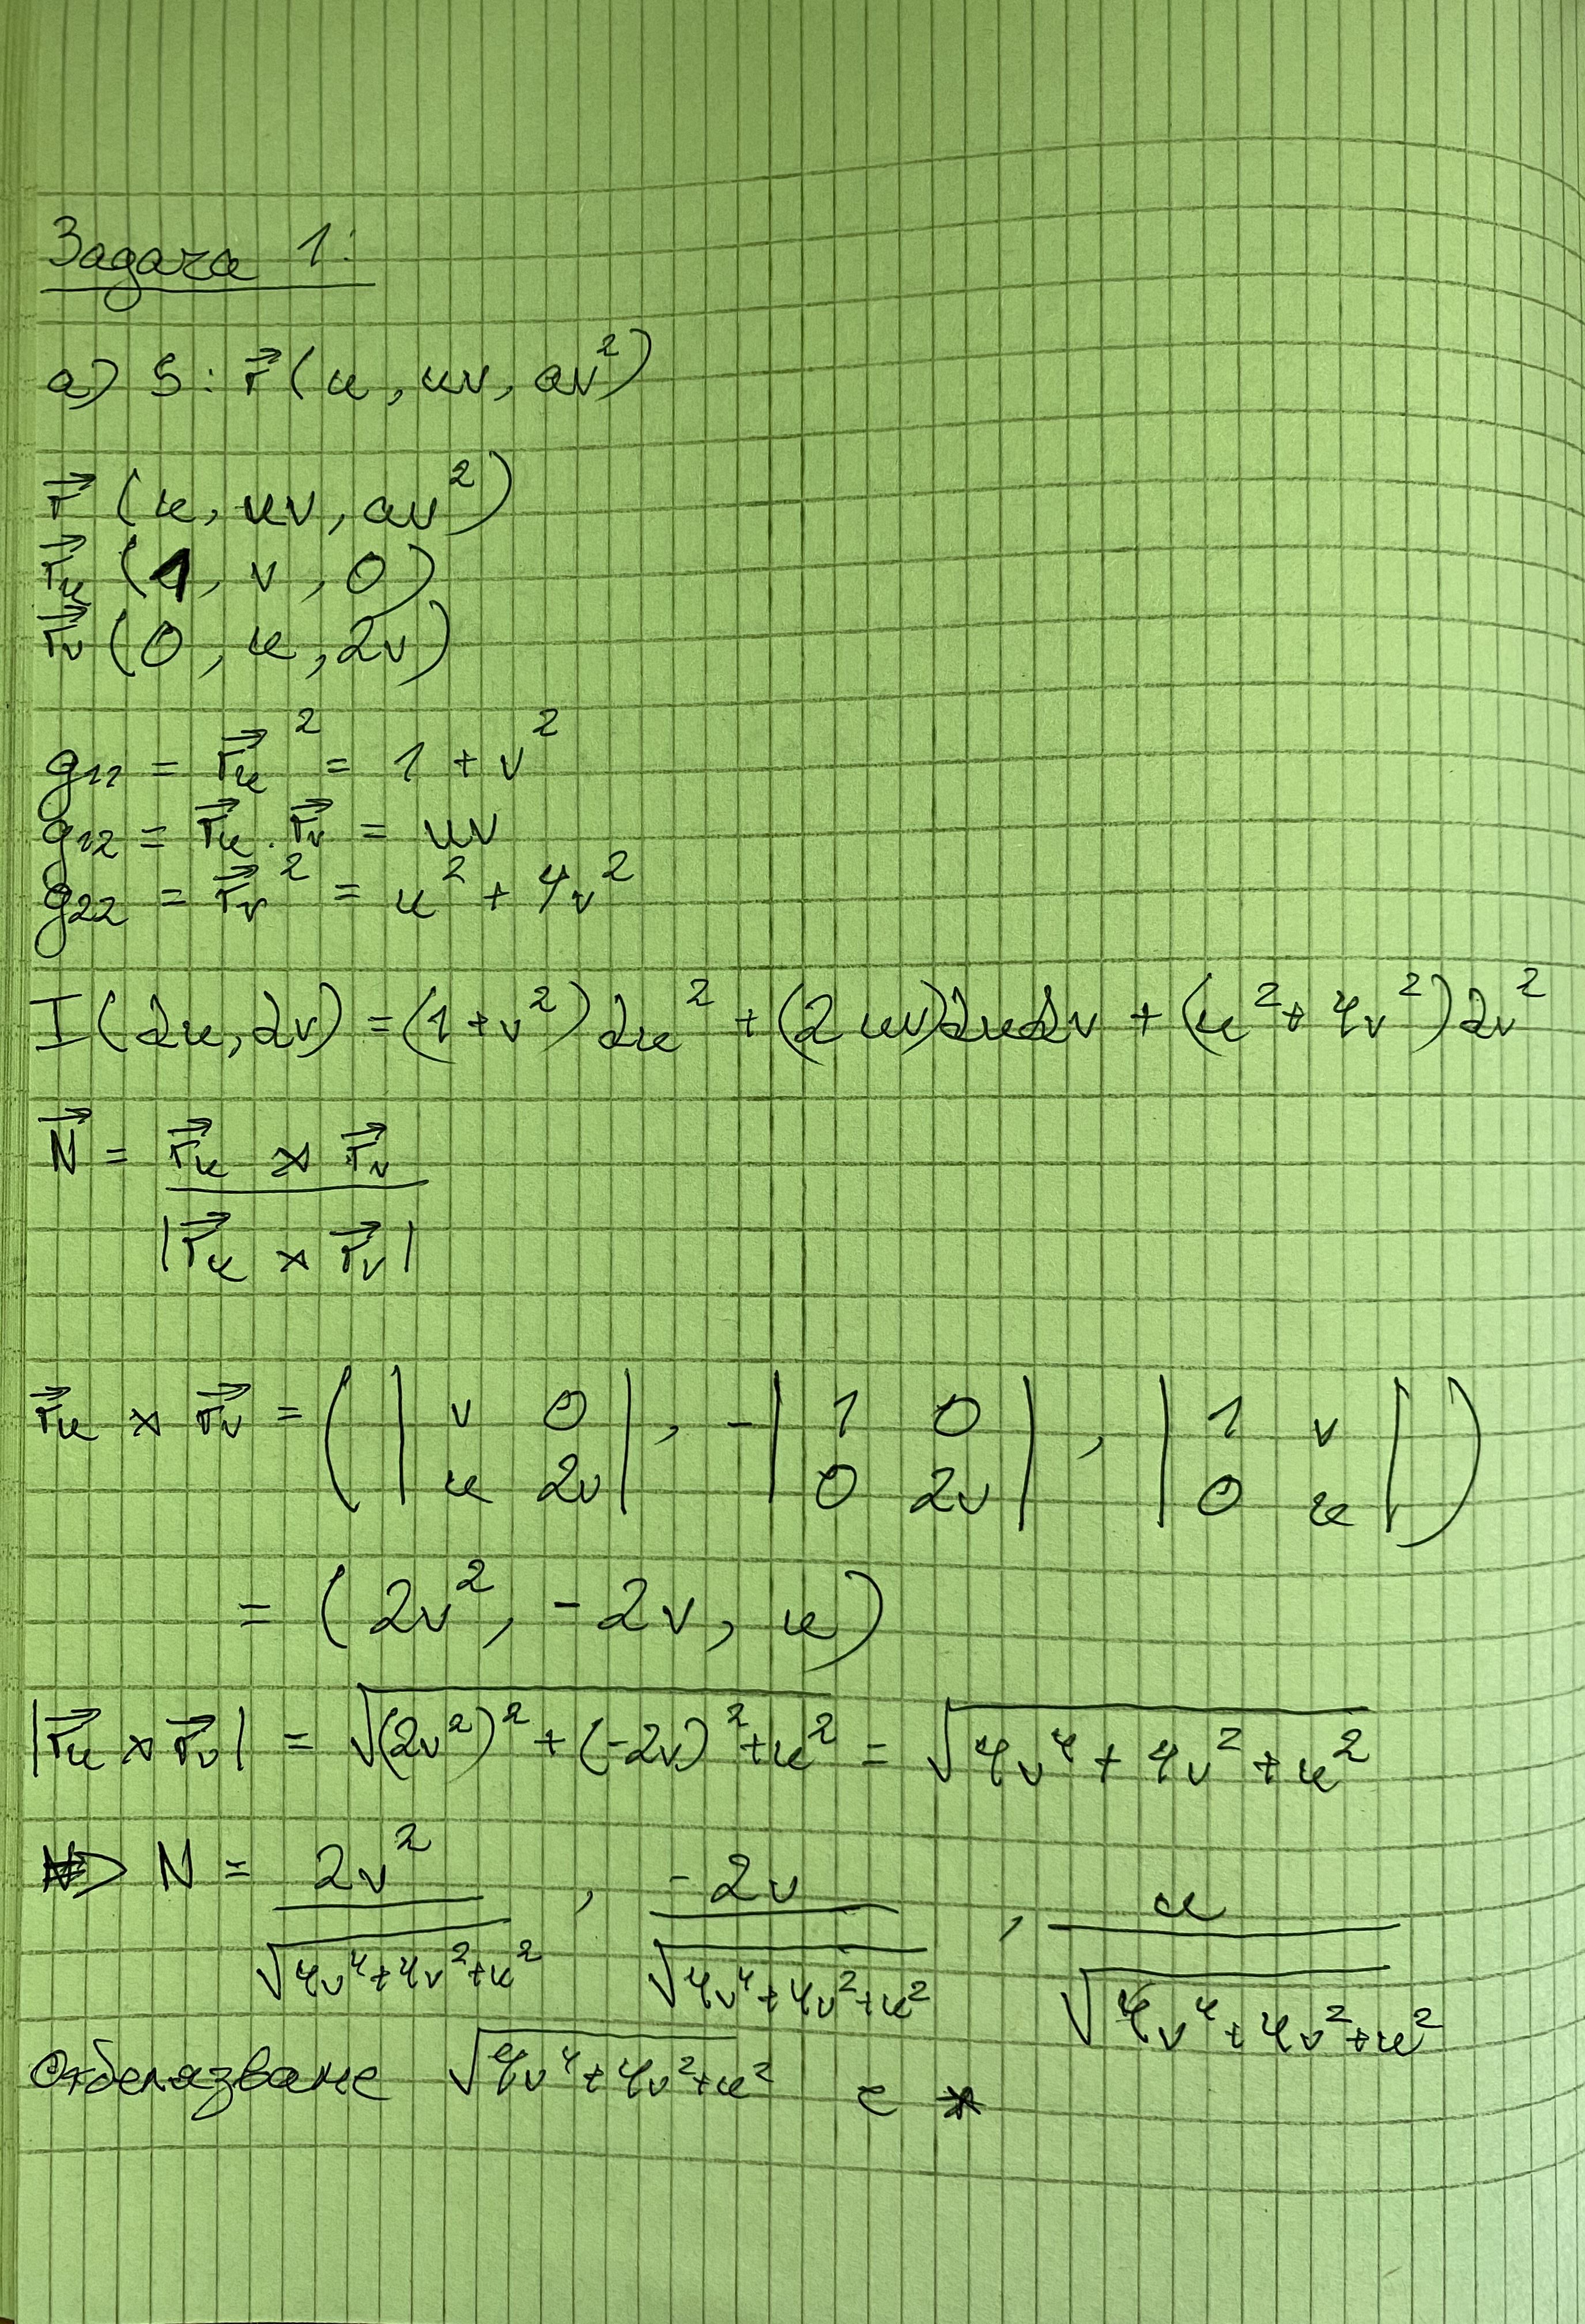 Задача 1:
a) S: r⃗ (u, uv, av²)
r⃗ (u, uv, av²)
r⃗ᵤ (1, v, 0)
r⃗ᵥ (0, u, 2v)
g₁₁ = r⃗ᵤ² = 1 + v²
g₁₂ = r⃗ᵤ . r⃗ᵥ = uv
g₂₂ = r⃗ᵥ² = u² + 4v²
I (du, dv) = (1 + v²) du² + (2uv) du dv + (u² + 4v²) dv²
N⃗ = (r⃗ᵤ × r⃗ᵥ) / |r⃗ᵤ × r⃗ᵥ|
r⃗ᵤ × r⃗ᵥ = ( | v 0 ; u 2v | , - | 1 0 ; 0 2v | , | 1 v ; 0 u | )
= (2v², -2v, u)
|r⃗ᵤ × r⃗ᵥ| = √((2v²)² + (-2v)² + u²) = √(4v⁴ + 4v² + u²)
=> N = 2v² / √(4v⁴ + 4v² + u²) , -2v / √(4v⁴ + 4v² + u²) , u / √(4v⁴ + 4v² + u²)
Отбелязваме √(4v⁴ + 4v² + u²) с *